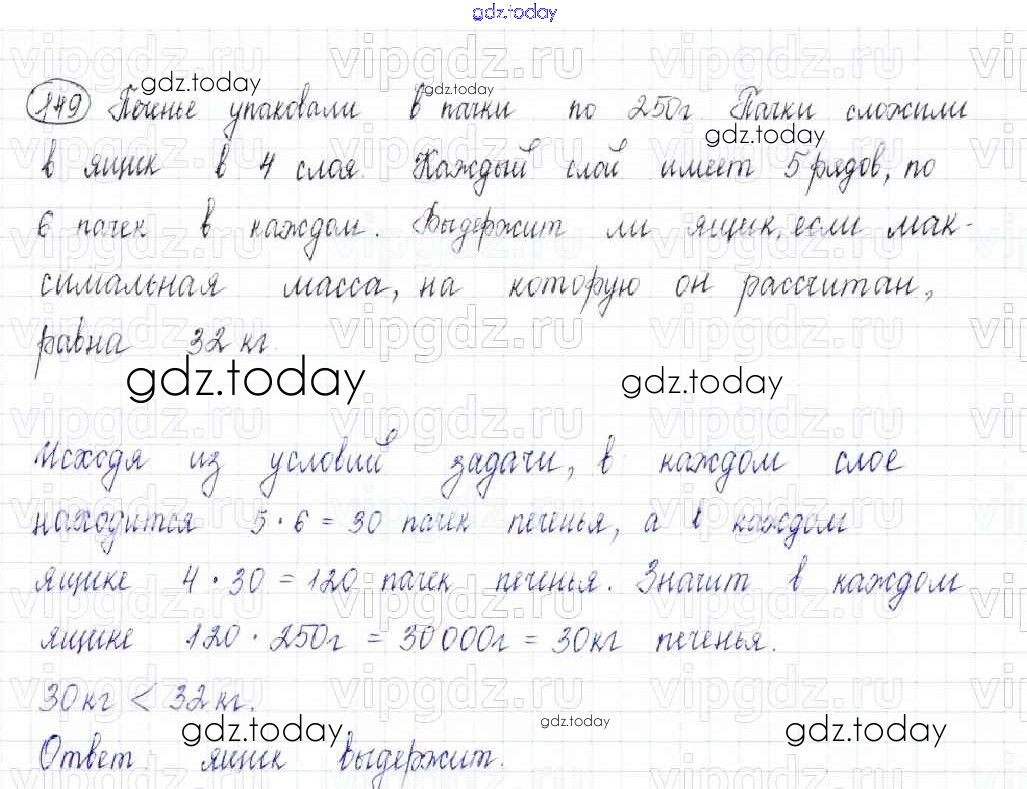 gdz.today
149 Печенье упаковали в пачки по 250г Пачки сложили
в ящик в 4 слоя. Каждый слой имеет 5 рядов, по
6 пачек в каждом. Выдержит ли ящик, если мак-
симальная масса, на которую он рассчитан,
равна 32 кг.
Исходя из условий задачи, в каждом слое
находится 5 · 6 = 30 пачек печенья, а в каждом
ящике 4 · 30 = 120 пачек печенья. Значит в каждом
ящике 120 · 250г = 30000г = 30кг печенья.
30 кг < 32 кг.
Ответ ящик выдержит.